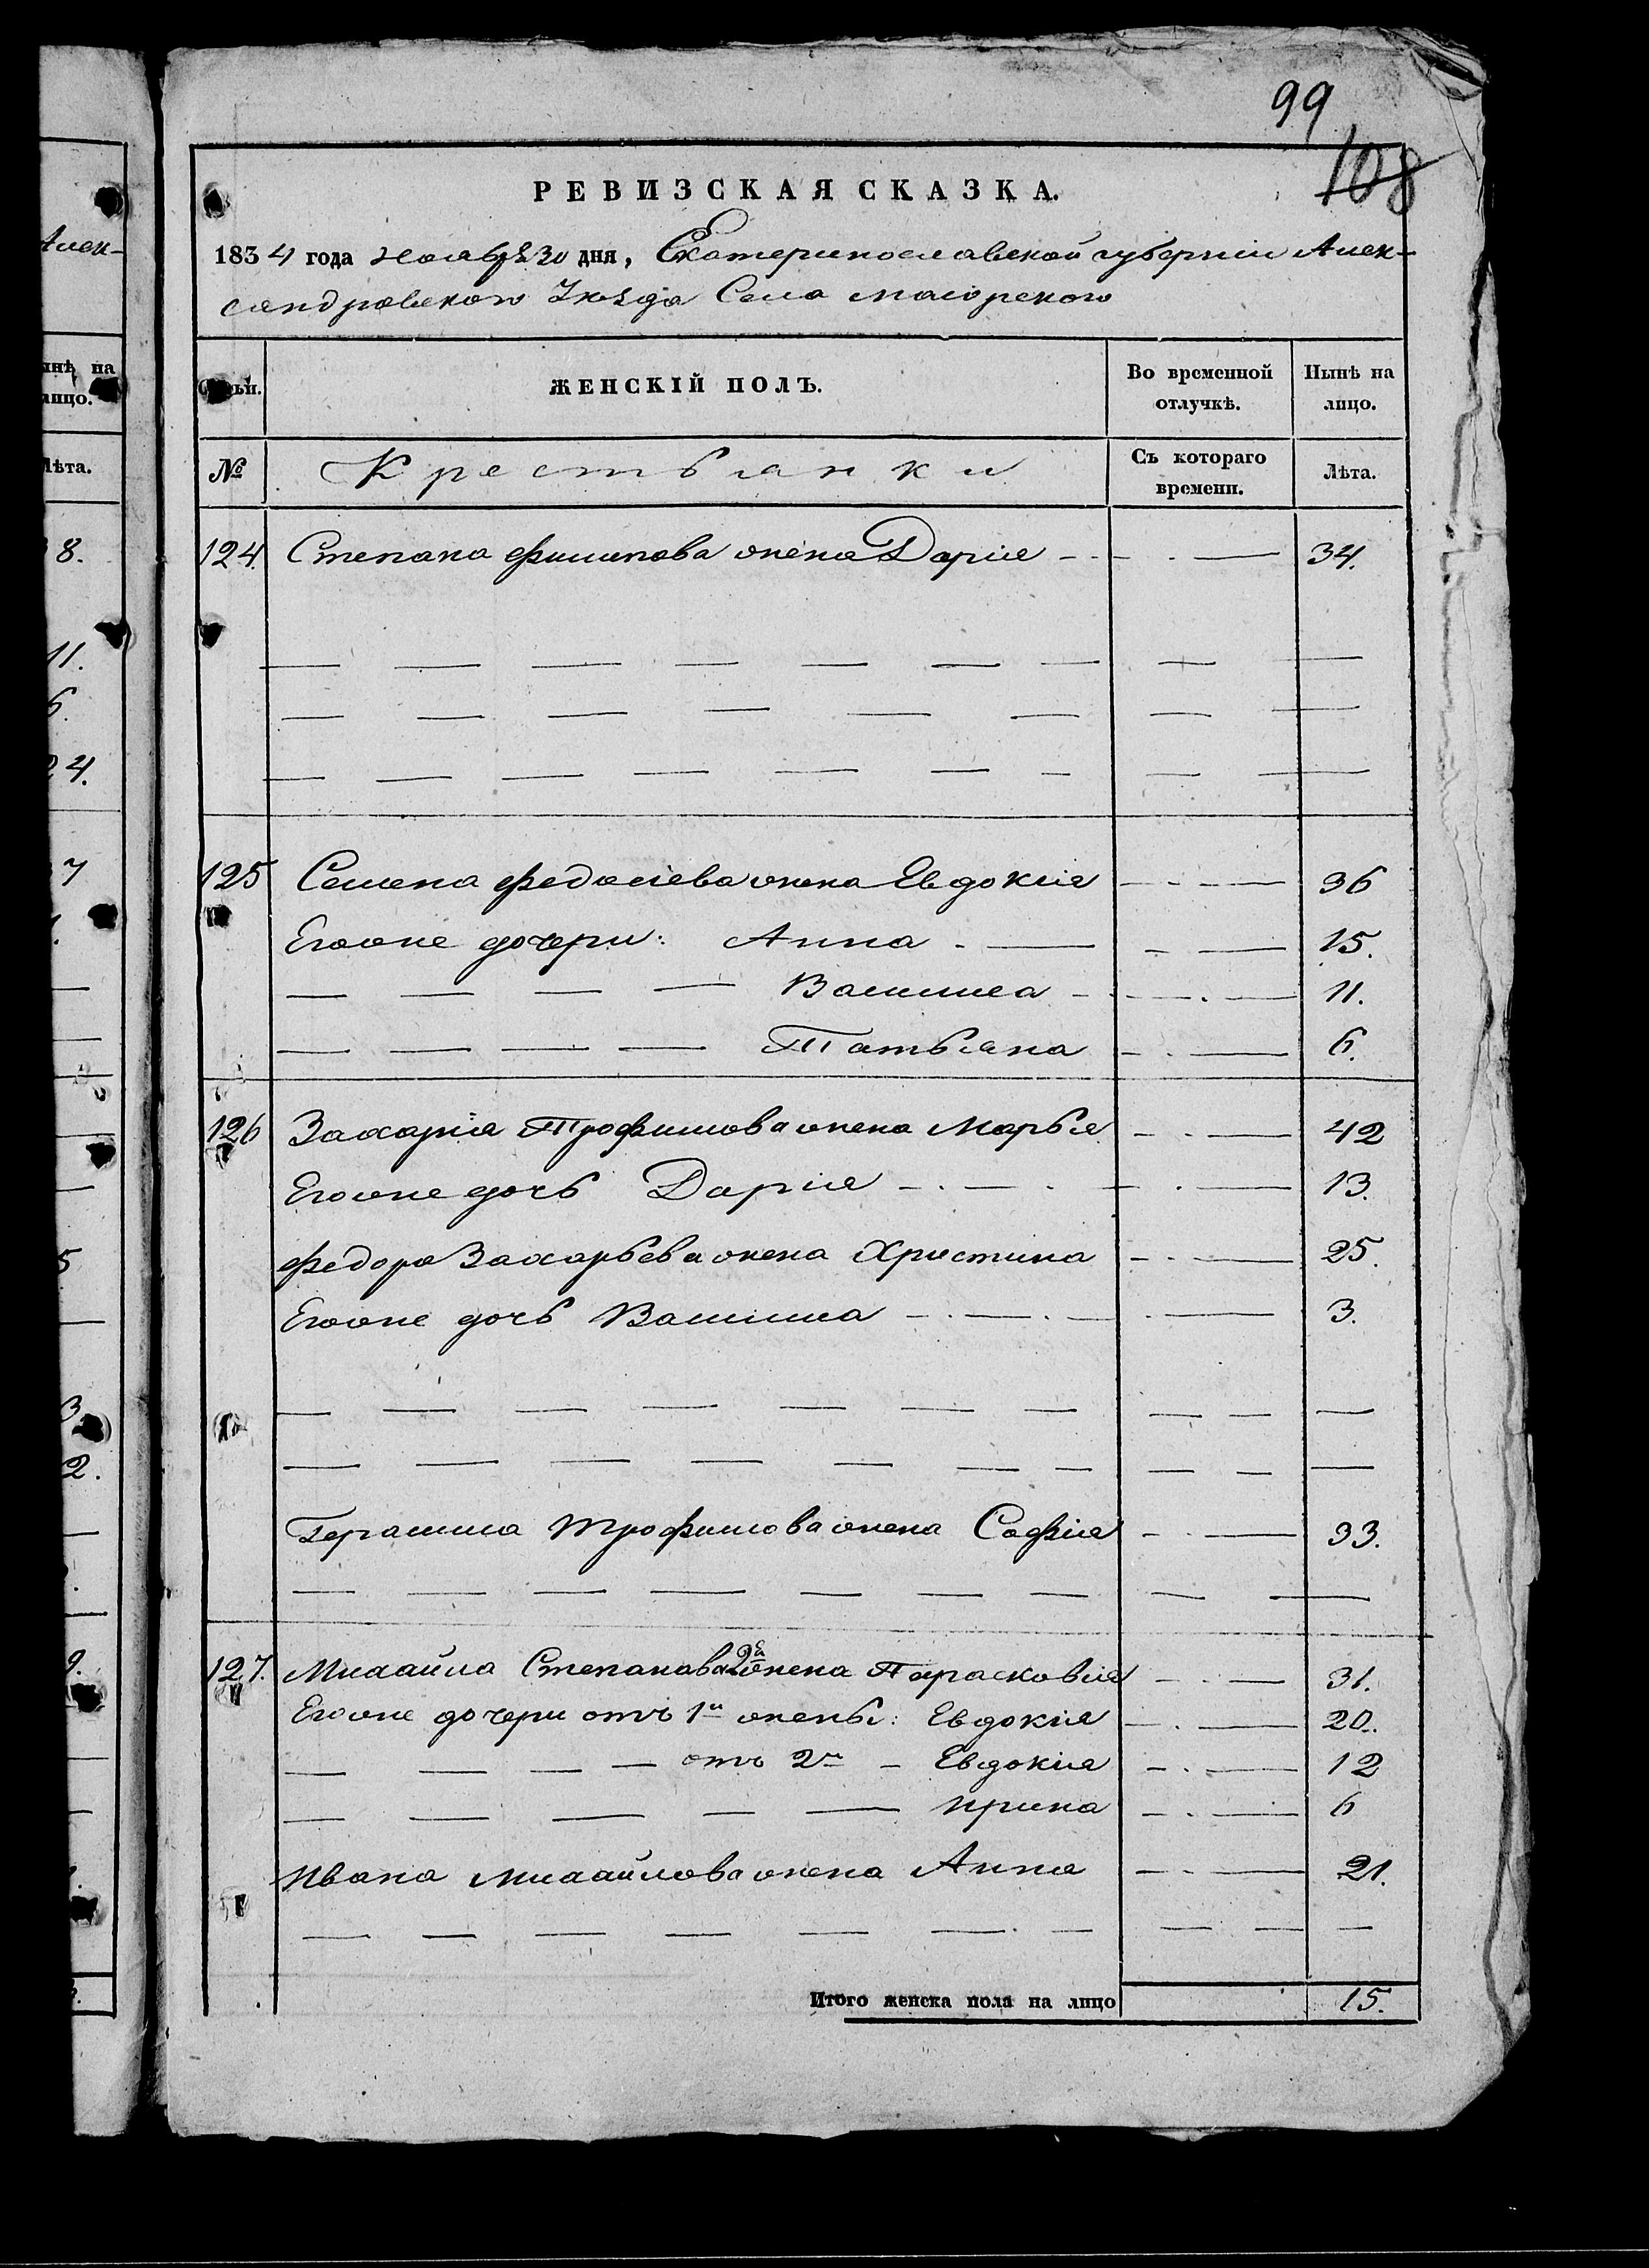 99
108
РЕВИЗСКАЯ СКАЗКА.
1834 года Ноября 30 дня, Екатеринославской губернии Алек-
сандровского Уѣзда Села Маіорского
ЖЕНСКІЙ ПОЛЪ.
Во временной отлучкѣ.
Нынѣ на лицо.
№ Крестьянки
Съ котораго времени.
Лѣта.
124. Степана Филипова жена Дарія 34.
125 Семена Федосіева жена Евдокія 36
Егоже дочери: Анна 15.
Васишса 11.
Татьяна 6.
126 Захарія Трофимова жена Марья 42
Егоже дочь Дарія 13.
Федора Захарьева жена Христина 25.
Егоже дочь Васишса 3.
Герасима Трофимова жена Софія 33.
127. Михайла Степанова 2я жена Парасковія 31.
Егоже дочери отъ 1й жены: Евдокія 20.
отъ 2й Евдокія 12
Ирина 6
Ивана Михайлова жена Анна 21.
Итого женска пола на лицо 15.
Алек-
ынѣ на
лицо.
Лѣта.
8.
11.
6.
24.
7
5
3
2.
9.